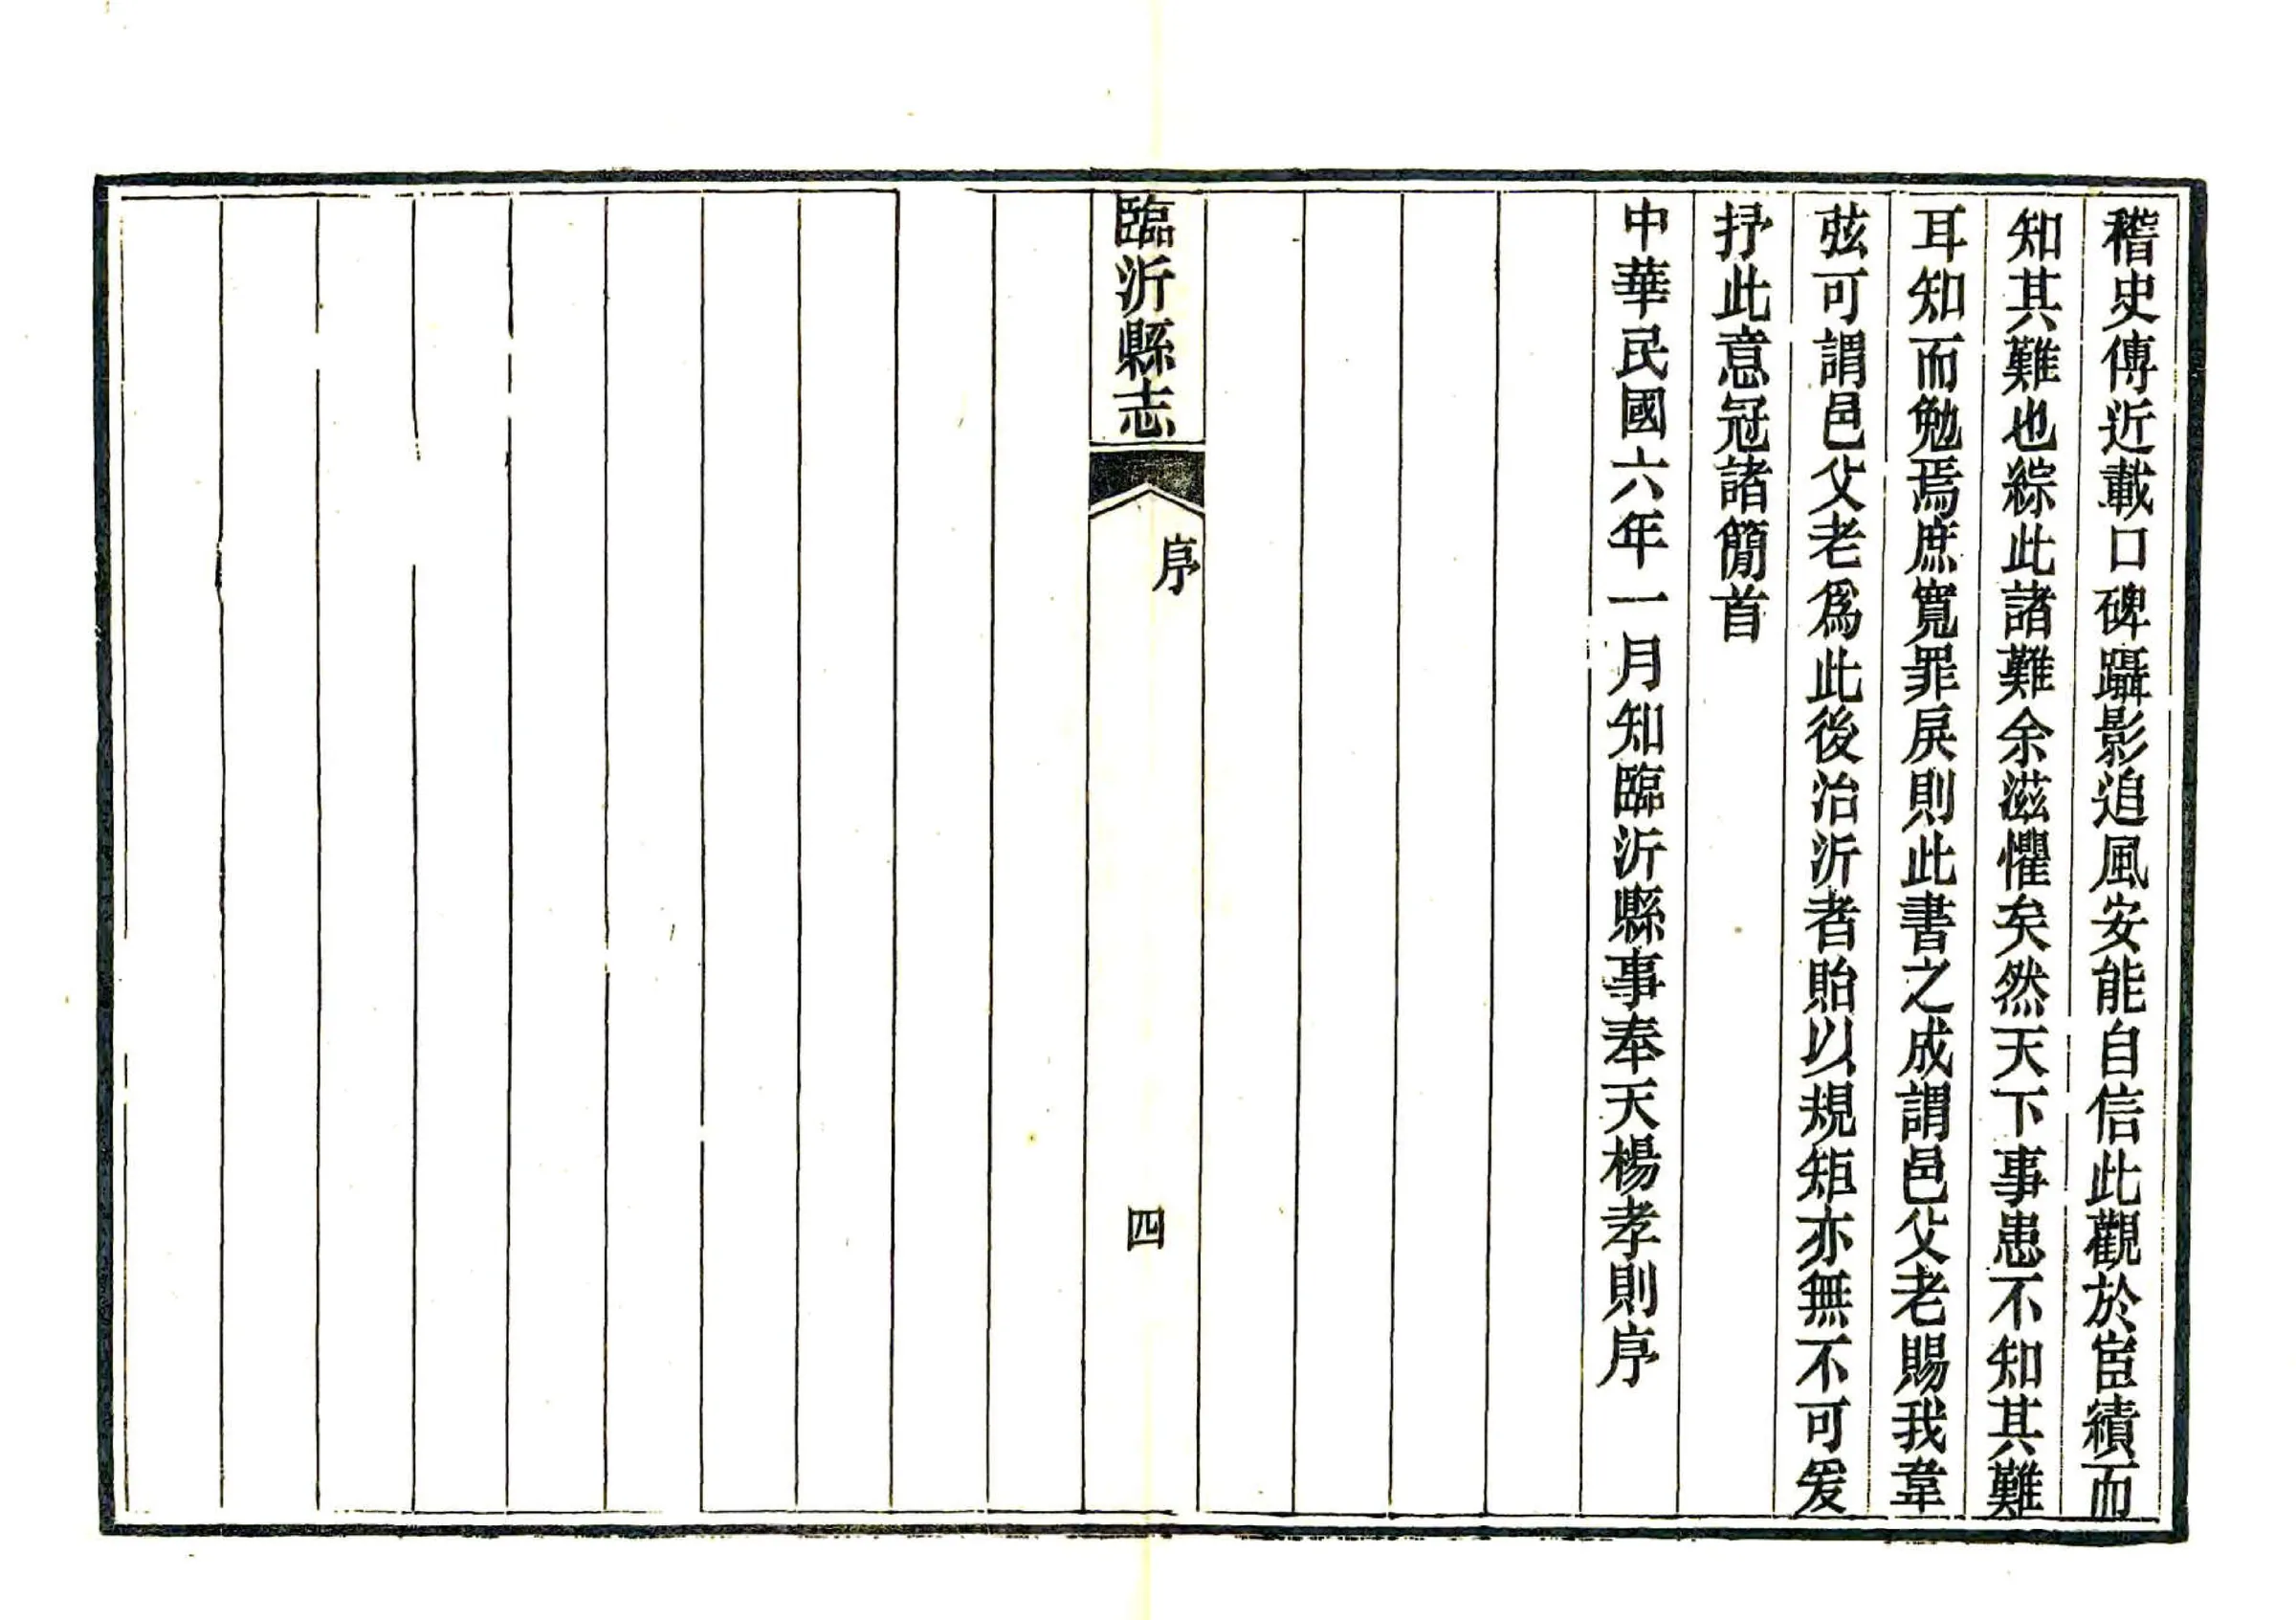 稽史傳近載口碑躡影追風安能自信此觀於宦績而
知其難也綜此諸難余滋懼矣然天下事患不知其難
耳知而勉焉庶寬罪戾則此書之成謂邑父老賜我韋
弦可謂邑父老爲此後治沂者貽以規矩亦無不可爰
抒此意冠諸簡首
中華民國六年一月知臨沂縣事奉天楊孝則序
臨沂縣志
序
四